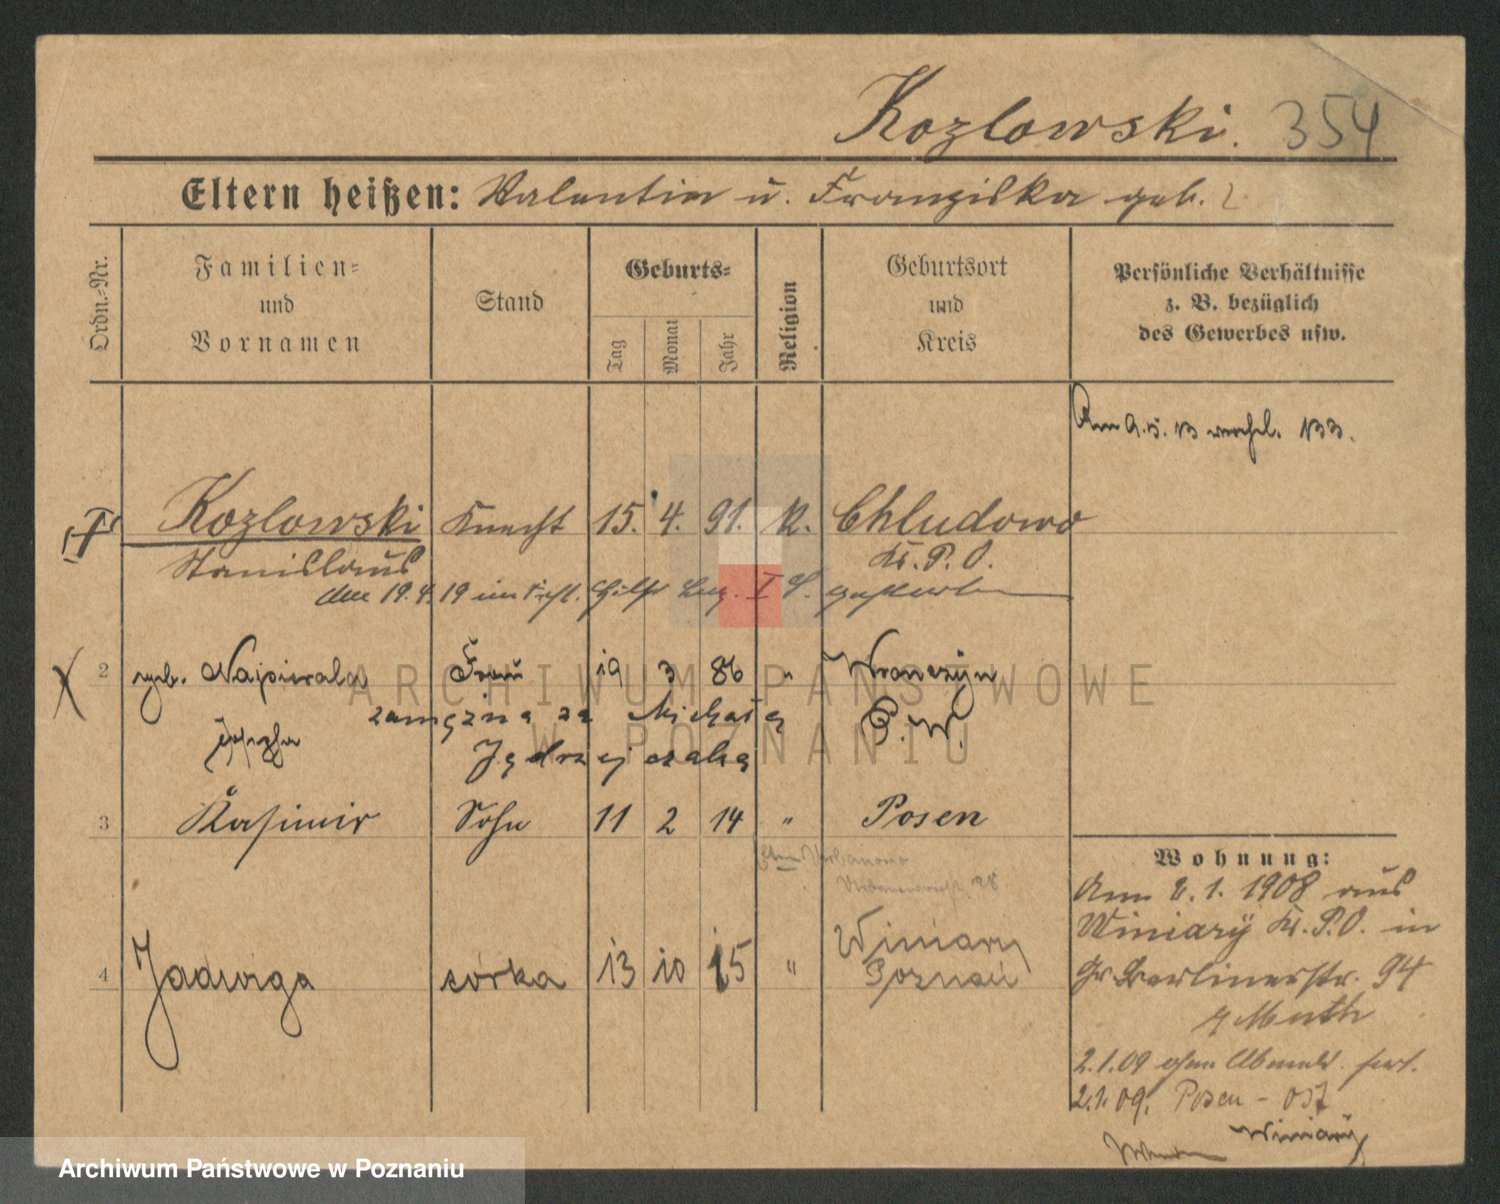 Kozlowski. 354
Eltern heißen: Valentin u. Franziska geb. ?
Ordn.-Nr.
Familien- und Vornamen
Stand
Geburts-
Tag
Monat
Jahr
Religion
Geburtsort und Kreis
Persönliche Verhältnisse
z. B. bezüglich
des Gewerbes usw.
Am 9.5.13 133.
Kozlowski Knecht 15. 4. 91. k. Chludowo
Stanislaus Kr. P. O.
den 19.4.19 im I gestorben
2 geb. Napierala Frau 19 3 86 " Wronczyn
zamężna za Michała P. W.
Josepha Jędrzejczaka
3 Kasimir Sohn 11 2 14 " Posen
4 Jadwiga córka 13 10 15 " Winiary
Poznań
Wohnung:
Am 2.1.1908 aus
Winiary Kr. P.O. in
Gr Berlinerstr. 94
Muth
2.1.09 ohne Abmeld. fort.
2.1.09. Posen - Ost
Winiary
ARCHIWUM PAŃSTWOWE
W POZNANIU
Archiwum Państwowe w Poznaniu